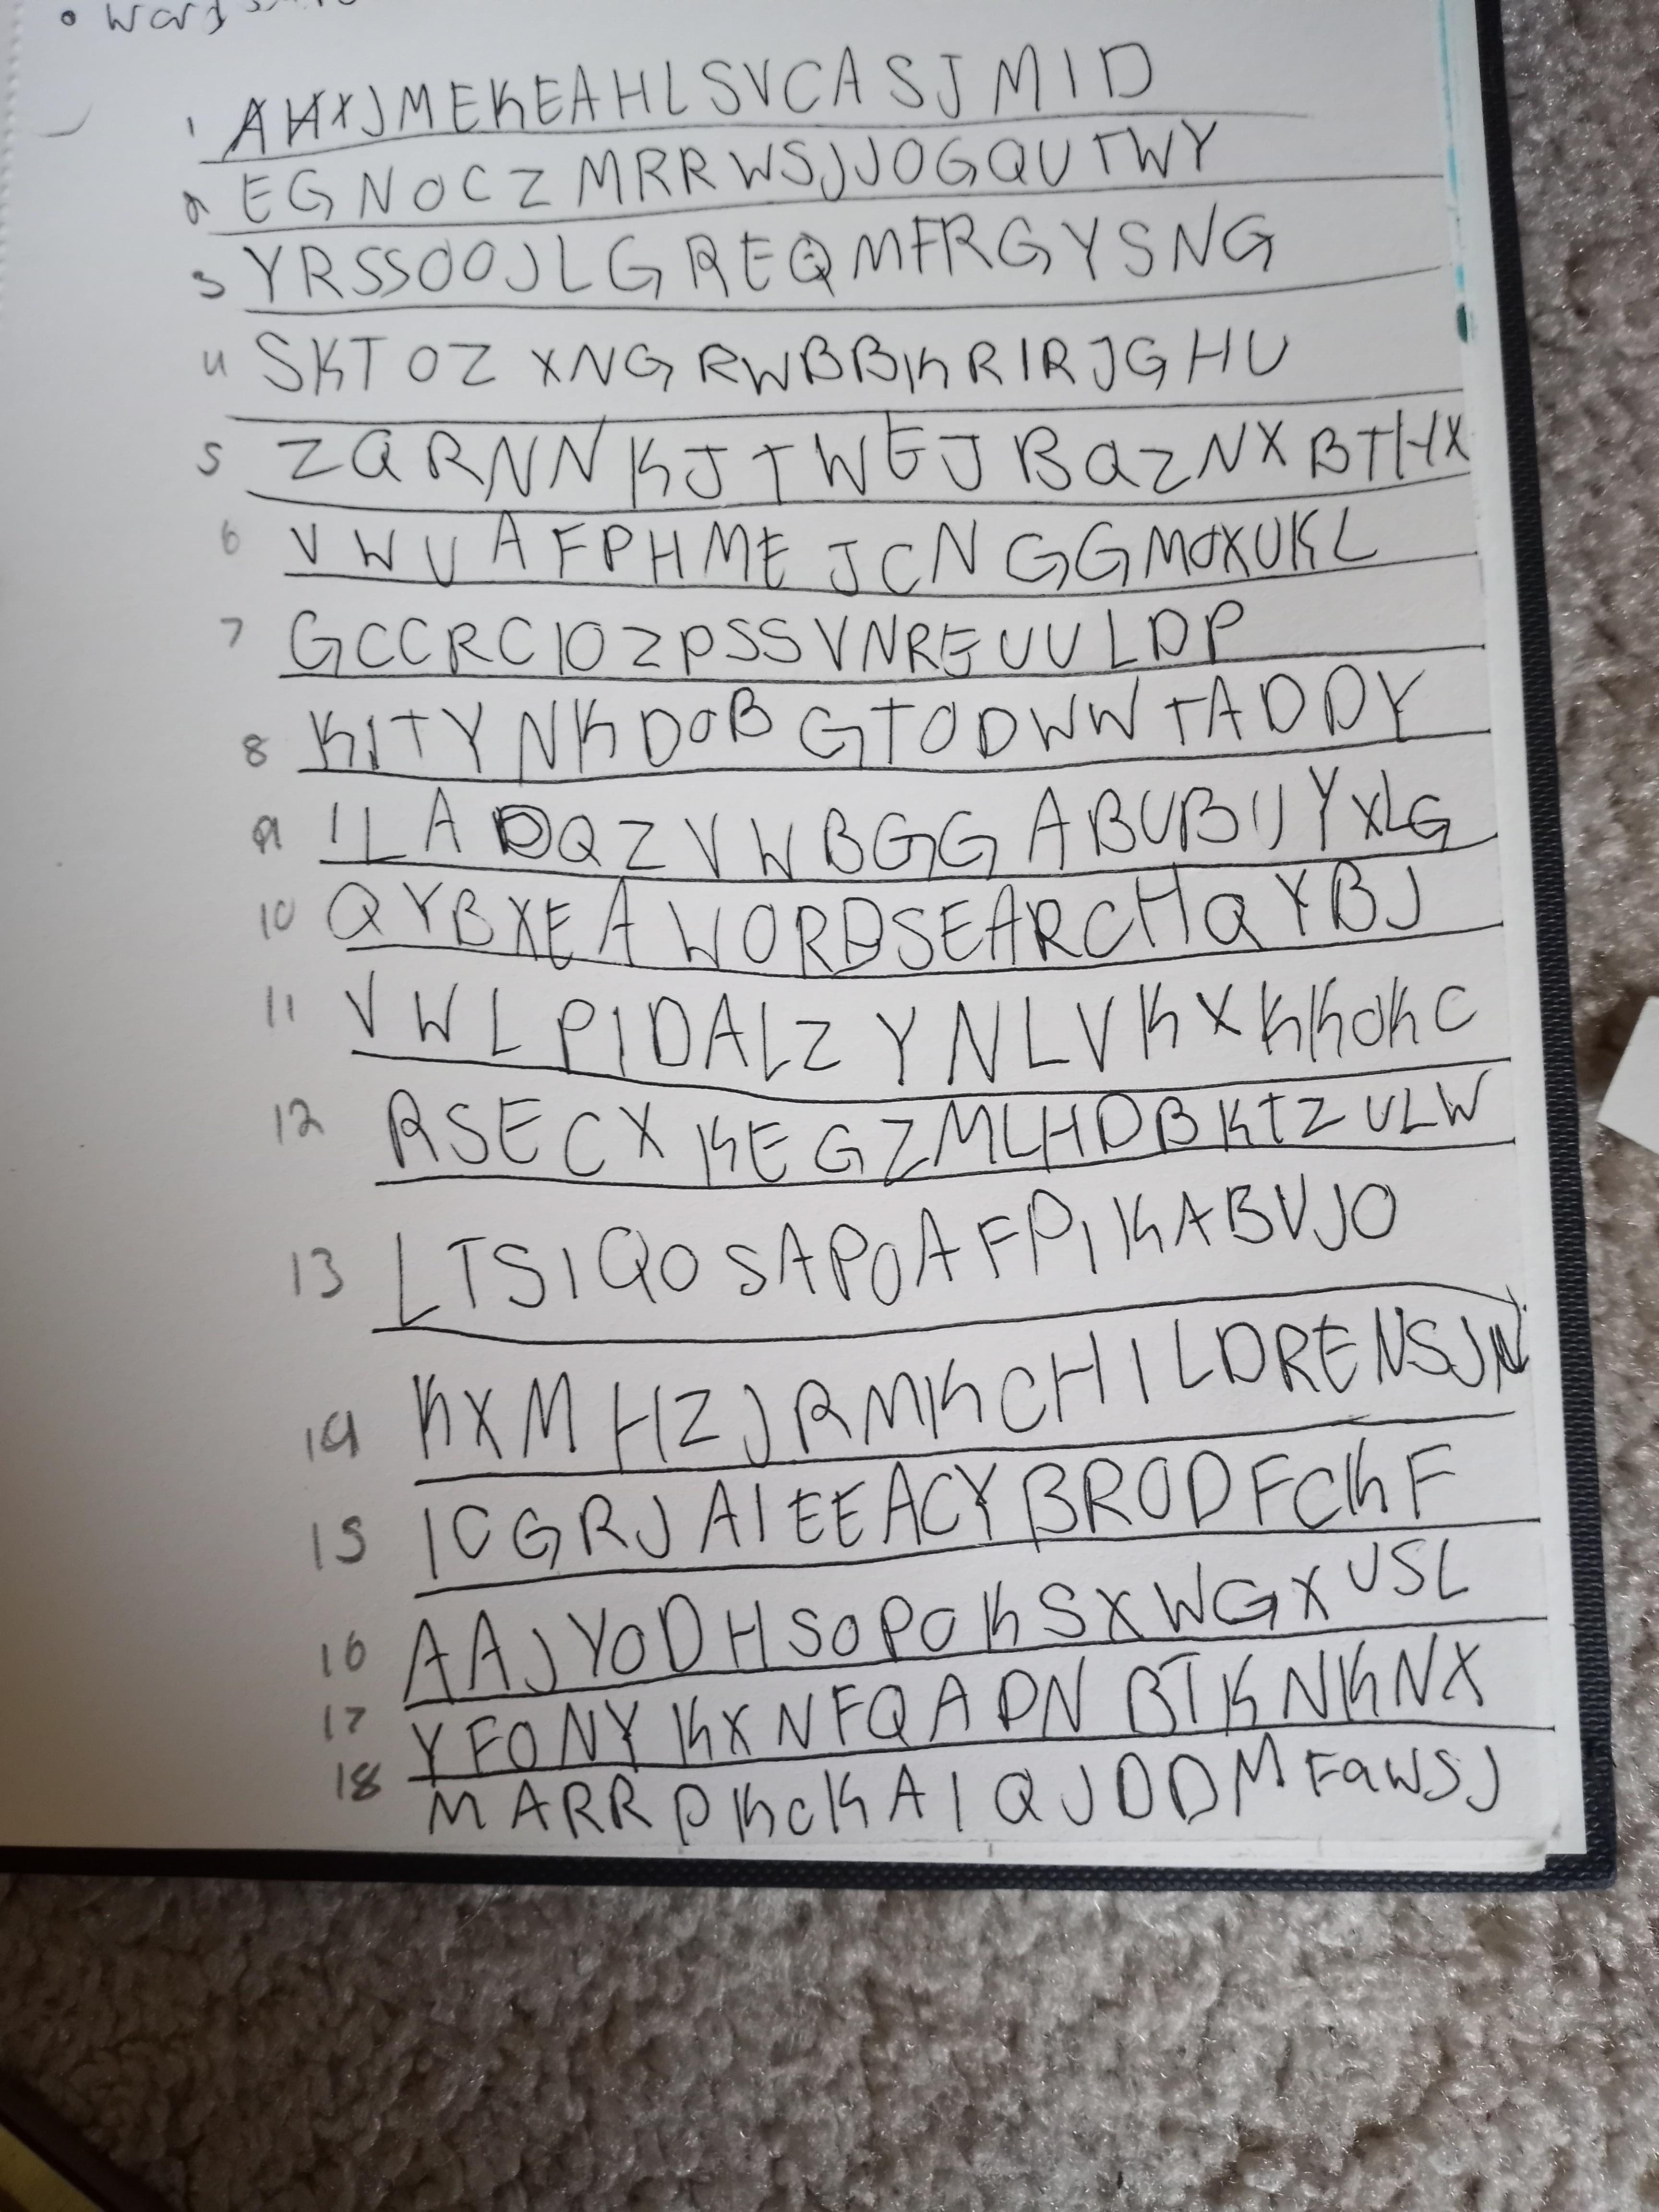 1 AHXJMEKEAHLSVCASJMID
2 EGNOCZMRRWSJJOGQUTWY
3 YRSSOOJLGREQMFRGYSNG
4 SKTOZXNGRWBBKRIRJGHU
5 ZQRNNKJTWEJBQZNXBTHX
6 VWUAFPHMEJCNGGMOXUKL
7 GCCRCIOZPSSVNREUULDP
8 KITYNKDOBGTODWWTADDY
9 ILADQZVWBGGABUBUYXLG
10 QYBXEAWORDSEARCHQYBJ
11 VWLPIDALZYNLVKXKKOKC
12 RSECXKEGZMLHDBKTZULW
13 LTSIQOSAPOAFPIKABVJO
14 KXMHZJRMKCHILDRENSJN
15 ICGRJAIEEACYBRODFCKF
16 AAJYODHSOPOKSXWGXUSL
17 YFONYKXNFQADNBTKNKNX
18 MARRPKCKAIQJDDMFQWSJ